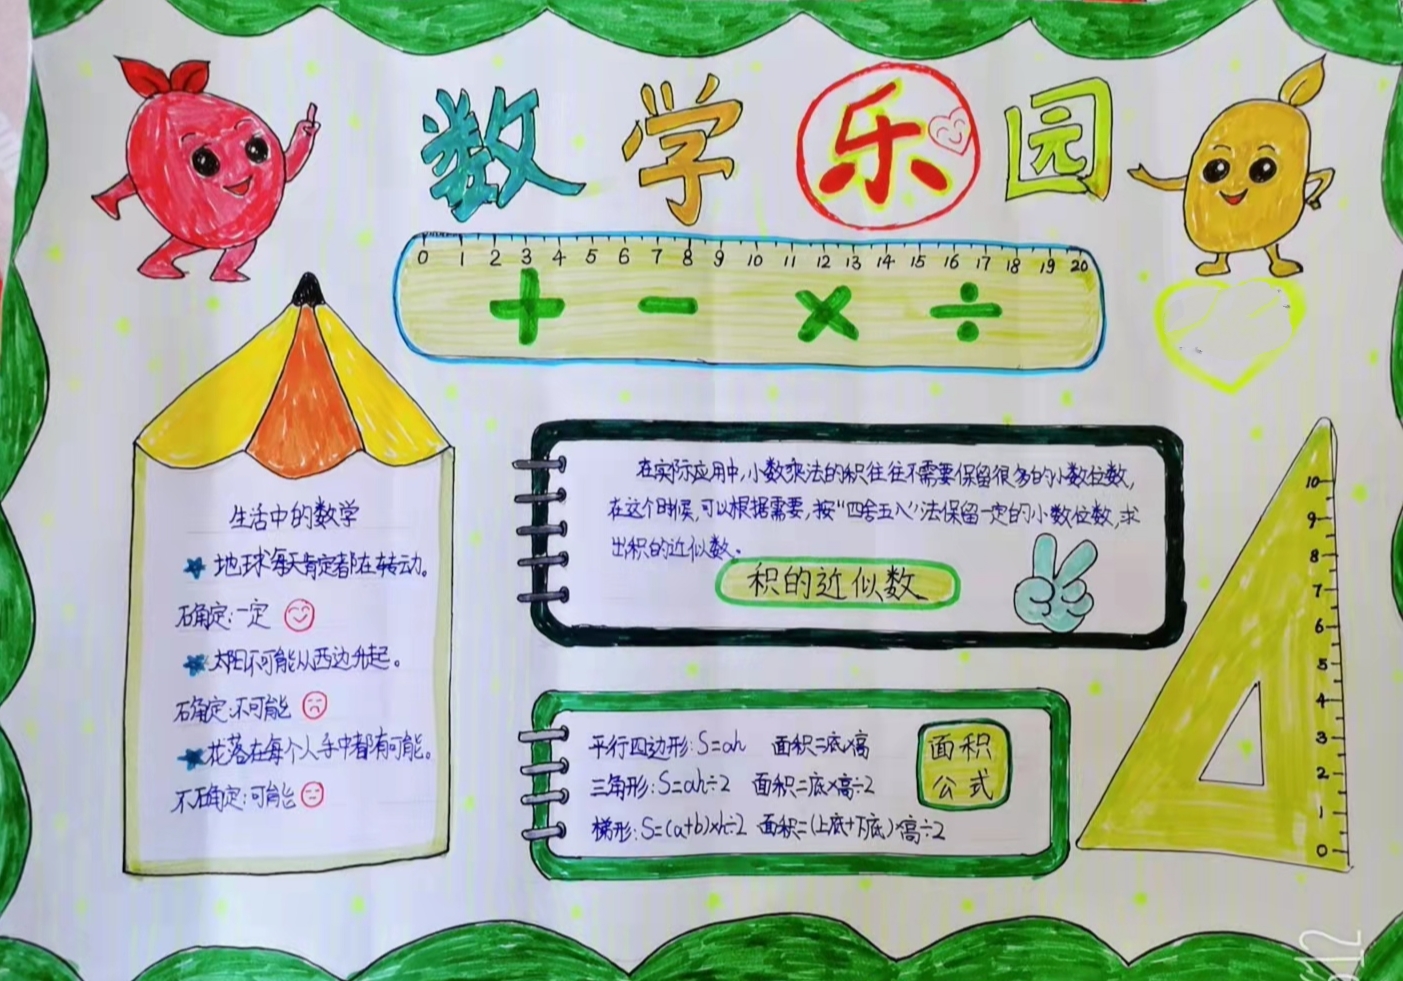 数学乐园
0 1 2 3 4 5 6 7 8 9 10 11 12 13 14 15 16 17 18 19 20
+ - × ÷
生活中的数学
★地球每天肯定都在转动。
确定:一定
★太阳不可能从西边升起。
确定:不可能
★花落在每个人手中都有可能。
不确定:可能
在实际应用中,小数乘法的积往往不需要保留很多的小数位数,
在这个时候,可以根据需要,按“四舍五入”法保留一定的小数位数,求
出积的近似数。
积的近似数
平行四边形:S=ah 面积=底×高
三角形:S=ah÷2 面积=底×高÷2
梯形:S=(a+b)×h÷2 面积=(上底+下底)×高÷2
面积
公式
10
9
8
7
6
5
4
3
2
1
0